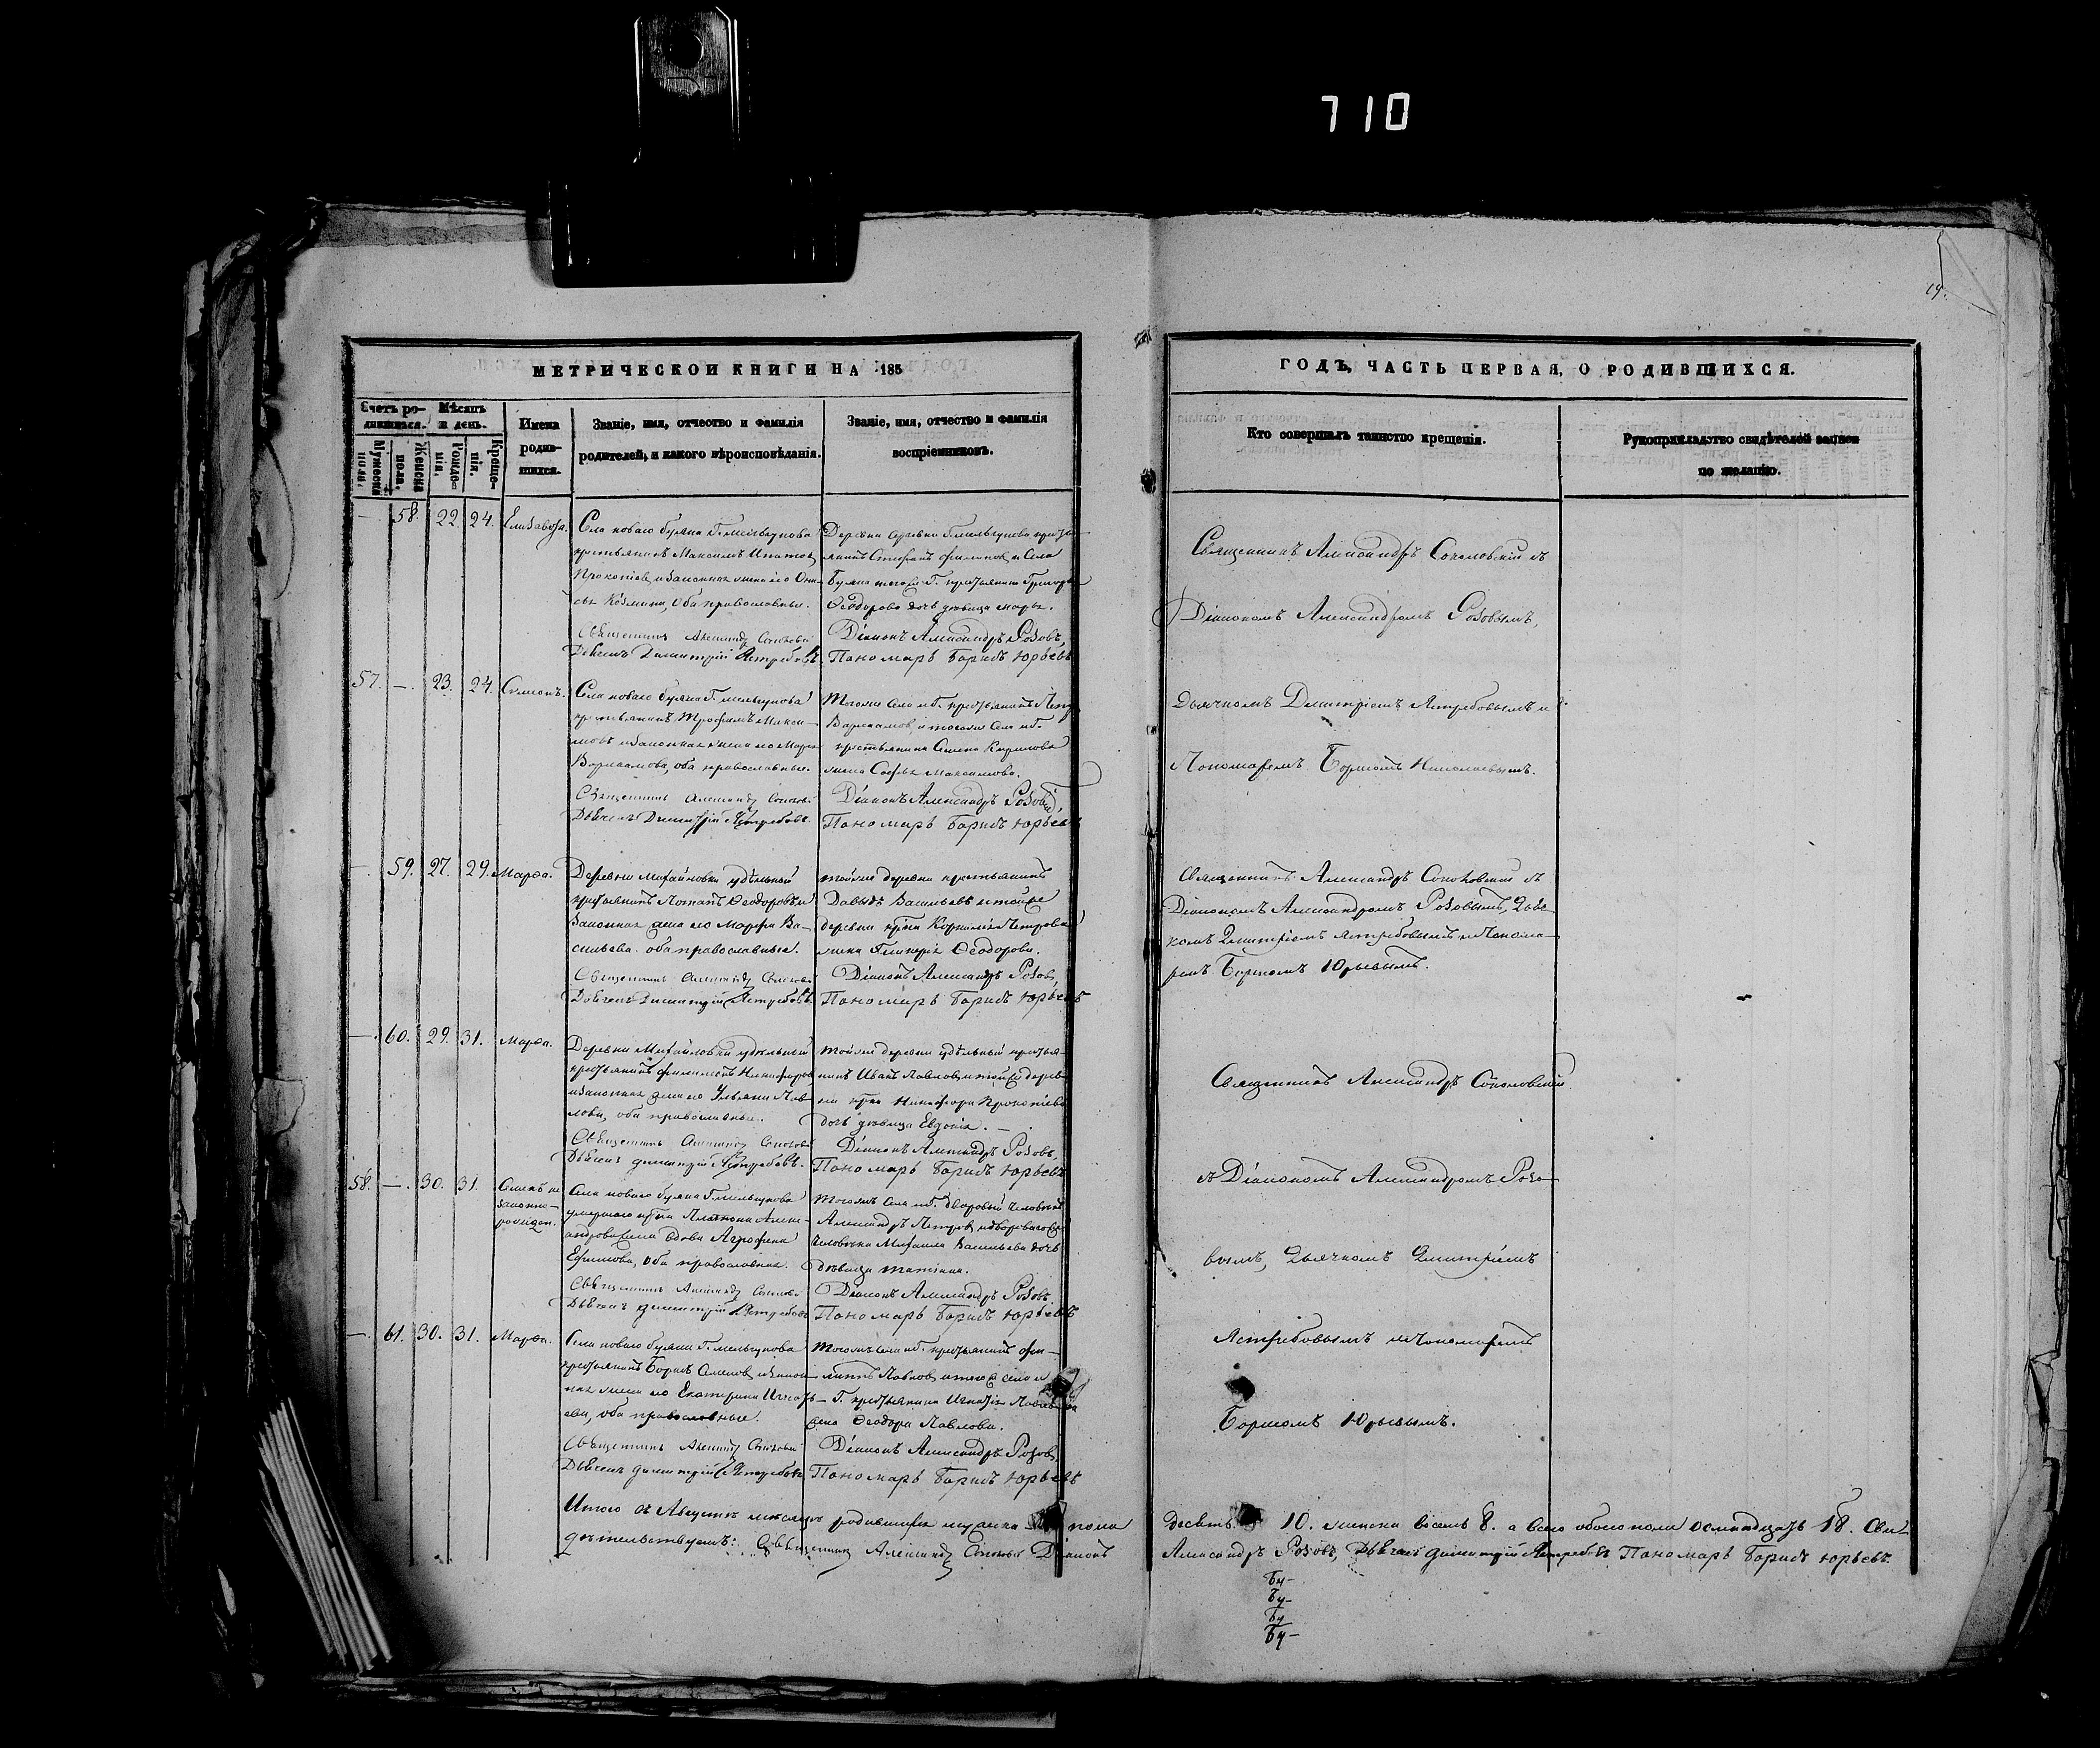 710
19.
МЕТРИЧЕСКОЙ КНИГИ НА 185
ГОДЪ, ЧАСТЬ ПЕРВАЯ, О РОДИВШИХСЯ.
Счетъ ро-
дившихся.
Мужеска
пола.
Женска
пола.
Мѣсяцъ
и день.
Рожде-
нія.
Креще-
нія.
Имена
родив-
шихся.
Званіе, имя, отчество и фамилія
родителей, и какого вѣроисповѣданія.
Званіе, имя, отчество и фамилія
воспріемниковъ.
Кто совершалъ таинство крещенія.
Рукоприкладство свидѣтелей записи
по желанію.
— 58. 22. 24. Елизавета.
Села новаго Буяна Г. Мельгунова
крестьянинъ Максимъ
Прокопіевъ и законная жена его
Козмина, оба православные.
Священникъ Александръ Соколовскій
Дьячекъ Димитрій Ястребовъ
крестья-
янинъ Стефанъ Филипов и Села
Буяна Г. крестьянина Григорія
Ѳеодорова дочь девица Марья.
Діаконъ Александръ Розовъ,
Пономарь Борисъ Юрьевъ
Священникъ Александръ Соколовскій съ
Діакономъ Александромъ Розовымъ,
57. — 23. 24. Симеонъ.
Села новаго Буяна Г. Мельгунова
крестьянинъ Трофимъ Макси-
мовъ и законная жена его Марья
Варлаамова, оба православные.
Священникъ Александръ Соколовскій
Дьячекъ Димитрій Ястребовъ
Тогоже Села и Г. крестьянинъ Петръ
Варлаамовъ и тогоже Села и Г.
крестьянина Кирилова
жена Софья Максимова.
Діаконъ Александръ Розовъ,
Пономарь Борисъ Юрьевъ
Дьячкомъ Димитріемъ Ястребовымъ и
Пономаремъ Борисомъ
— 59. 27. 29. Марѳа.
Деревни Михайловки удѣльный
крестьянинъ Потапъ Ѳеодоровъ и
законная жена его Марфа Ва-
сильева оба православные.
Священникъ Александръ Соколовскій
Дьячекъ Димитрій Ястребовъ
тойже деревни крестьянинъ
Давыдъ Васильевъ и тойже
деревни Корнилія Петрова
жена Ѳеодорова.
Діаконъ Александръ Розовъ,
Пономарь Борисъ Юрьевъ
Священникъ Александръ Соколовскій съ
Діакономъ Александромъ Розовымъ, Дьяч-
комъ Димитріемъ Ястребовымъ и Понома-
ремъ Борисомъ Юрьевымъ.
— 60. 29. 31. Марѳа.
Деревни Михайловки удѣльный
крестьянинъ Никифоровъ
и законная жена его Ульяна Пав-
лова, оба православные.
Священникъ Александръ Соколовскій
Дьячекъ Димитрій Ястребовъ.
тойже деревни удѣльный крестья-
нинъ Иванъ Павловъ и тойже дерев-
ни Никифора Прокопіева
дочь девица Евдокія. —
Діаконъ Александръ Розовъ,
Пономарь Борисъ Юрьевъ
Священникъ Александръ Соколовскій
58. — 30. 31.
незаконно-
рожден.
Села новаго Буяна Г. Мельгунова
умершаго Платона Алекс-
андрова жена вдова Агрофена
Ефимова, оба православные.
Священникъ Александръ Соколовскій
Дьячекъ Димитрій Ястребовъ
Тогожъ Села и Г. дворовый человѣкъ
Александръ Петровъ
человѣка Михаила Васильева дочь
девица Татіана.
Діаконъ Александръ Розовъ,
Пономарь Борисъ Юрьевъ
съ Діакономъ Александромъ Розо-
вымъ, Дьячкомъ Димитріемъ
— 61. 30. 31. Марѳа.
Села новаго Буяна Г. Мельгунова
крестьянинъ Борисъ Семенов и закон-
ная жена его Екатерина Игнать-
ева, оба православные.
Священникъ Александръ Соколовскій
Дьячекъ Димитрій Ястребовъ
Тогожъ Села и Г. крестьянинъ Фи-
липпъ Павловъ и тогоже села и
Г. крестьянина Игнатія
жена Ѳеодора Павлова.
Діаконъ Александръ Розовъ,
Пономарь Борисъ Юрьевъ
Ястребовымъ и Пономаремъ
Борисомъ Юрьевымъ.
Итого въ Августѣ мѣсяцѣ родившихся мужеска пола десять 10. женска восемь 8. а всего обоего пола осмнадцать 18. Сви-
дѣтельствуемъ: Священникъ Александръ Соколовскій Діаконъ Александръ Розовъ, Дьячекъ Димитрій Ястребовъ Пономарь Борисъ Юрьевъ.
Бу-
Бу-
Бу
Бу-